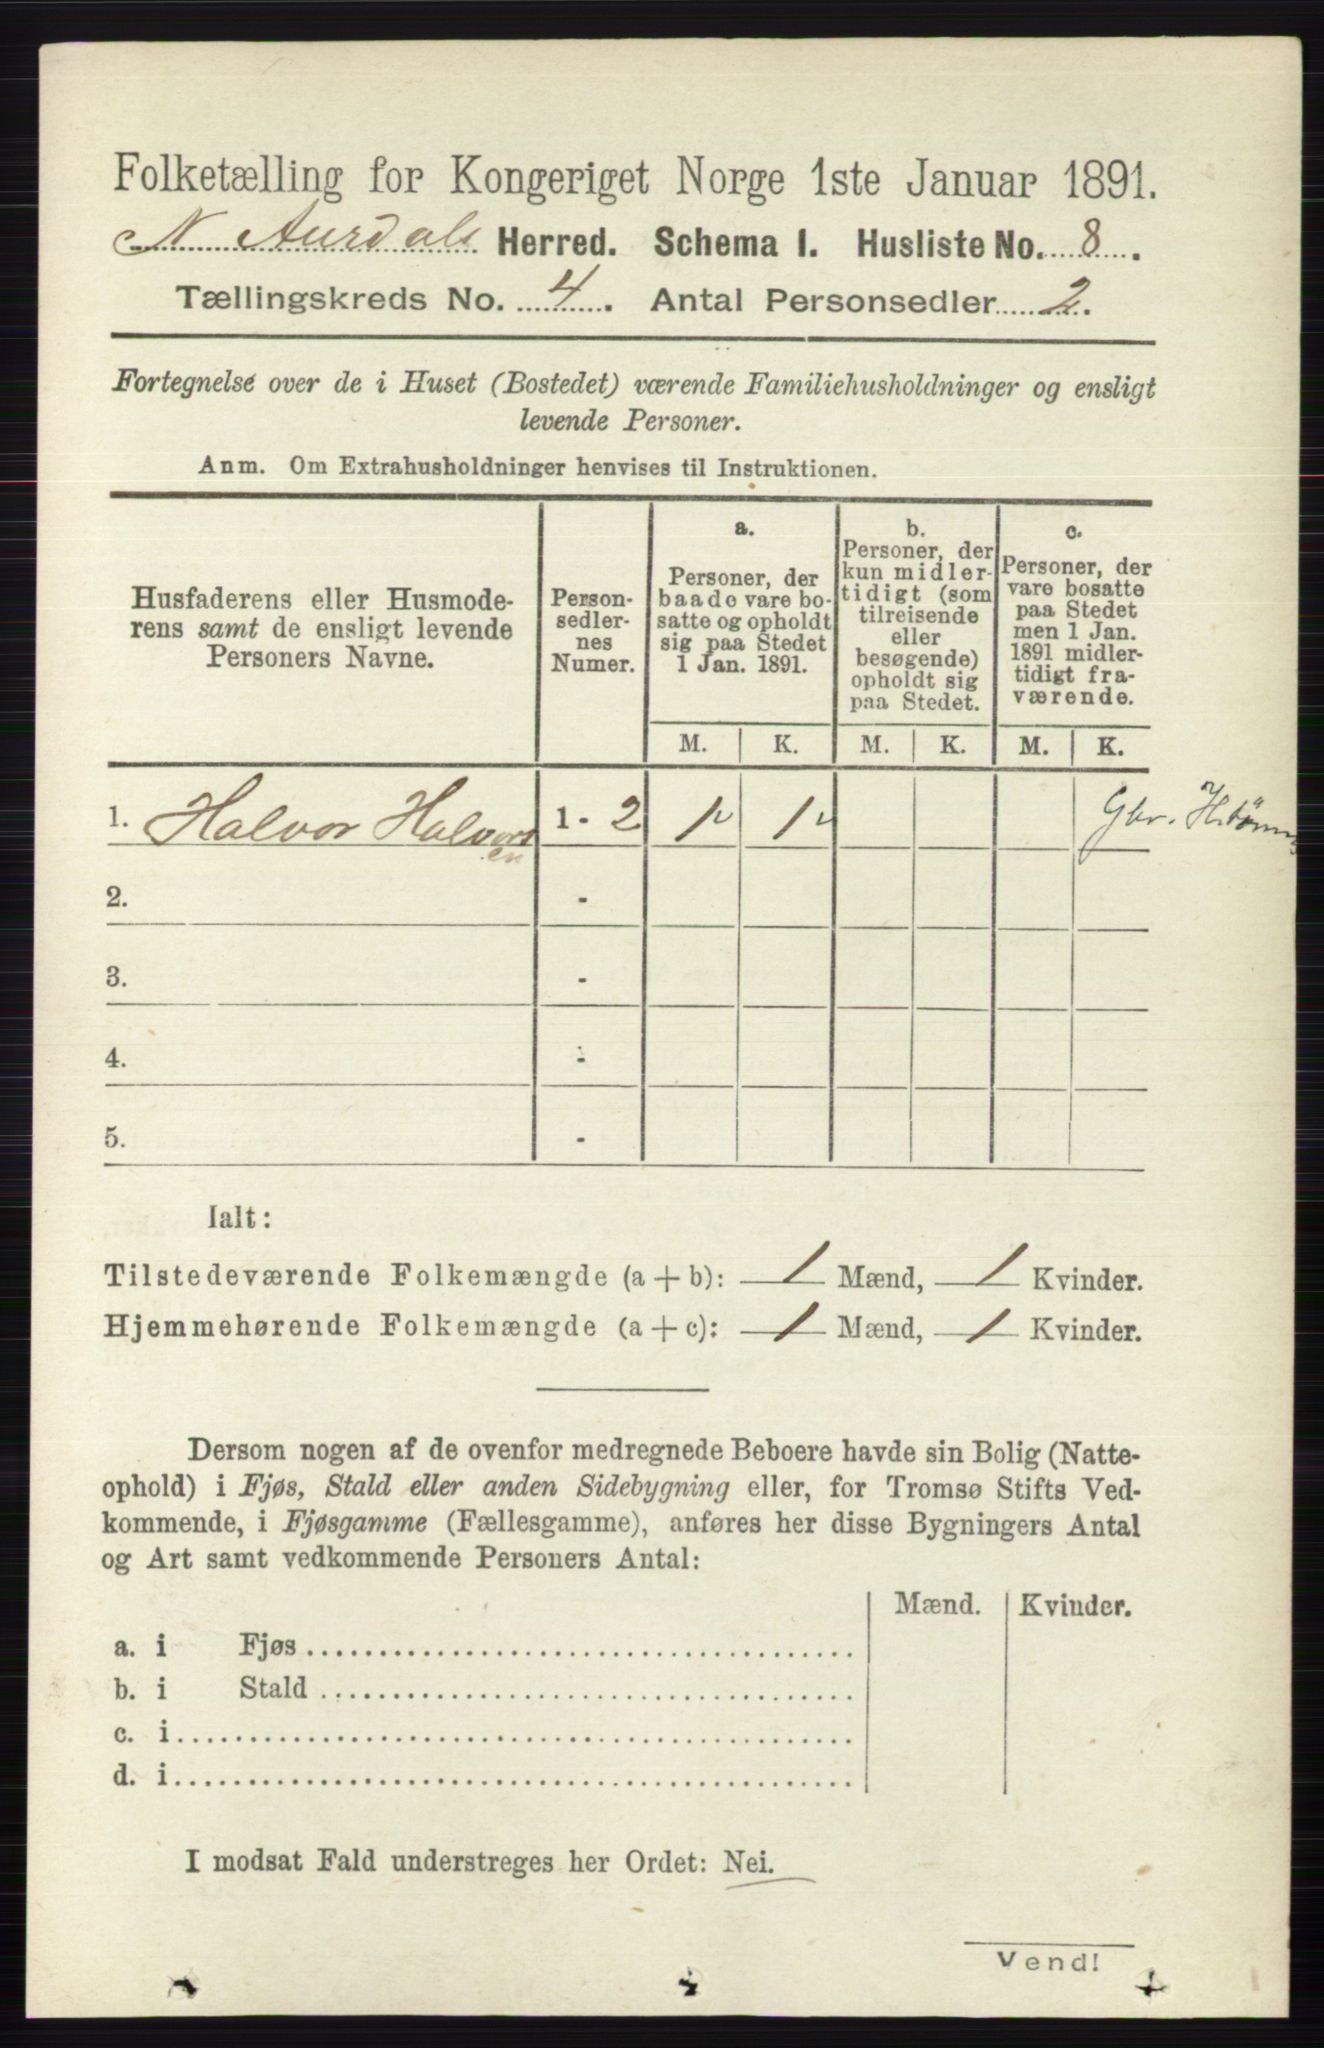 Folketælling for Kongeriget Norge 1ste Januar 1891.
N. Aurdals Herred. Schema 1. Husliste No. 8.
Tællingskreds No. 4. Antal Personsedler 2.
Fortegnelse over de i Huset (Bostedet) værende Familiehusholdninger og ensligt
levende Personer.
Anm. Om Extrahusholdninger henvises til Instruktionen.
Husfaderens eller Husmode-
rens samt de ensligt levende
Personers Navne.
Person-
sedler-
nes
Numer.
a.
Personer, der
baade vare bo-
satte og opholdt
sig paa Stedet
1 Jan. 1891.
b.
Personer, der
kun midler-
tidigt (som
tilreisende
eller
besøgende)
opholdt sig
paa Stedet.
c.
Personer, der
vare bosatte
paa Stedet
men 1 Jan.
1891 midler-
tidigt fra-
værende.
M. K. M. K. M. K.
1. Halvor Halvorsen 1 - 2 1 1 Gbr.
2. -
3. -
4. -
5. -
Ialt:
Tilstedeværende Folkemængde (a + b): 1 Mænd, 1 Kvinder.
Hjemmehørende Folkemængde (a + c): 1 Mænd, 1 Kvinder.
Dersom nogen af de ovenfor medregnede Beboere havde sin Bolig (Natte-
ophold) i Fjøs, Stald eller anden Sidebygning eller, for Tromsø Stifts Ved-
kommende, i Fjøsgamme (Fællesgamme), anføres her disse Bygningers Antal
og Art samt vedkommende Personers Antal:
Mænd. Kvinder.
a. i Fjøs
b. i Stald
c. i
d. i
I modsat Fald understreges her Ordet: Nei.
Vend!